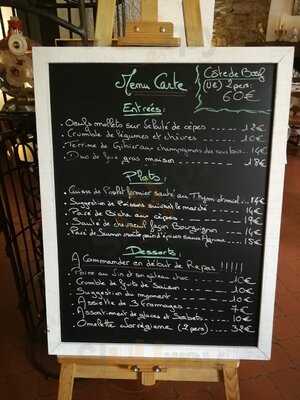 Menu Carte
Côte de Boeuf
(1kg) 2 pers:
60€
Entrées:
. Oeufs mollets sur velouté de cèpes ---- 12€
. Crumble de légumes et chèvres ---- 10€
. Terrine de Gibier aux champignons des sous bois -- 14€
. Duo de foie gras maison ---- 18€
Plats:
. Cuisse de Poulet fermier sauté au Thym citronné... 14€
. Suggestion de Poissons suivant le marché ---- 14€
. Pavé de Biche aux cèpes ---- 19€
. Sauté de chevreuil façon Bourguignon ---- 14€
. Pavé de Saumon croûte pain d'épices sauce 15€
Desserts:
A Commander en début de Repas !!!!!
. Poire au Vin et son gâteau choc ---- 10€
. Crumble de fruits de Saison ---- 10€
. Suggestion du moment ---- 10€
. Assiette de 3 fromages ---- 7€
. Assortiment de glaces et Sorbets ---- 10€
. Omelette Norvégienne (2 pers) ---- 32€